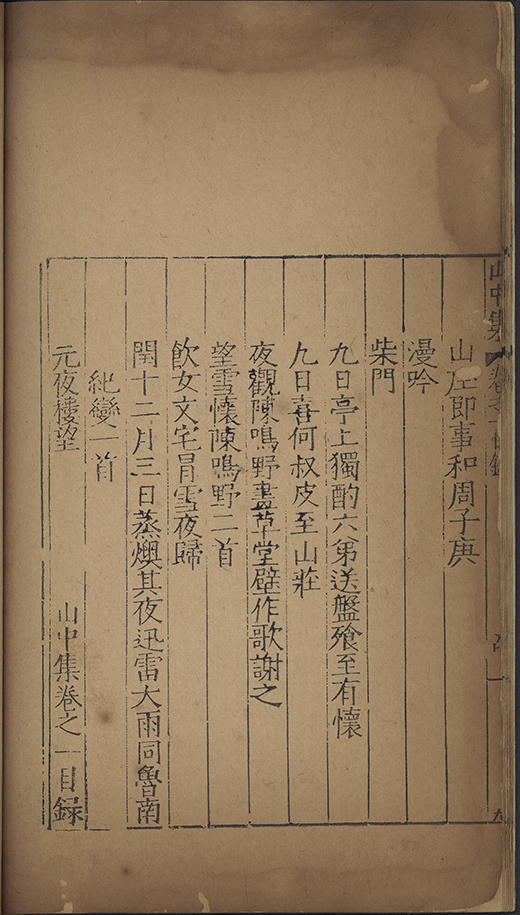 山中集 卷之一目錄
山庄即事和周子庚
漫吟
柴門
九日亭上獨酌六弟送盤飱至有懷
九日喜何叔皮至山莊
夜觀陳鳴野畫草堂壁作歌謝之
望雪懷陳鳴野二首
飲女文宅冒雪夜歸
閏十二月三日蒸燠其夜迅雷大雨同魯南
紀變一首
元夜樓望
山中集卷之一目錄